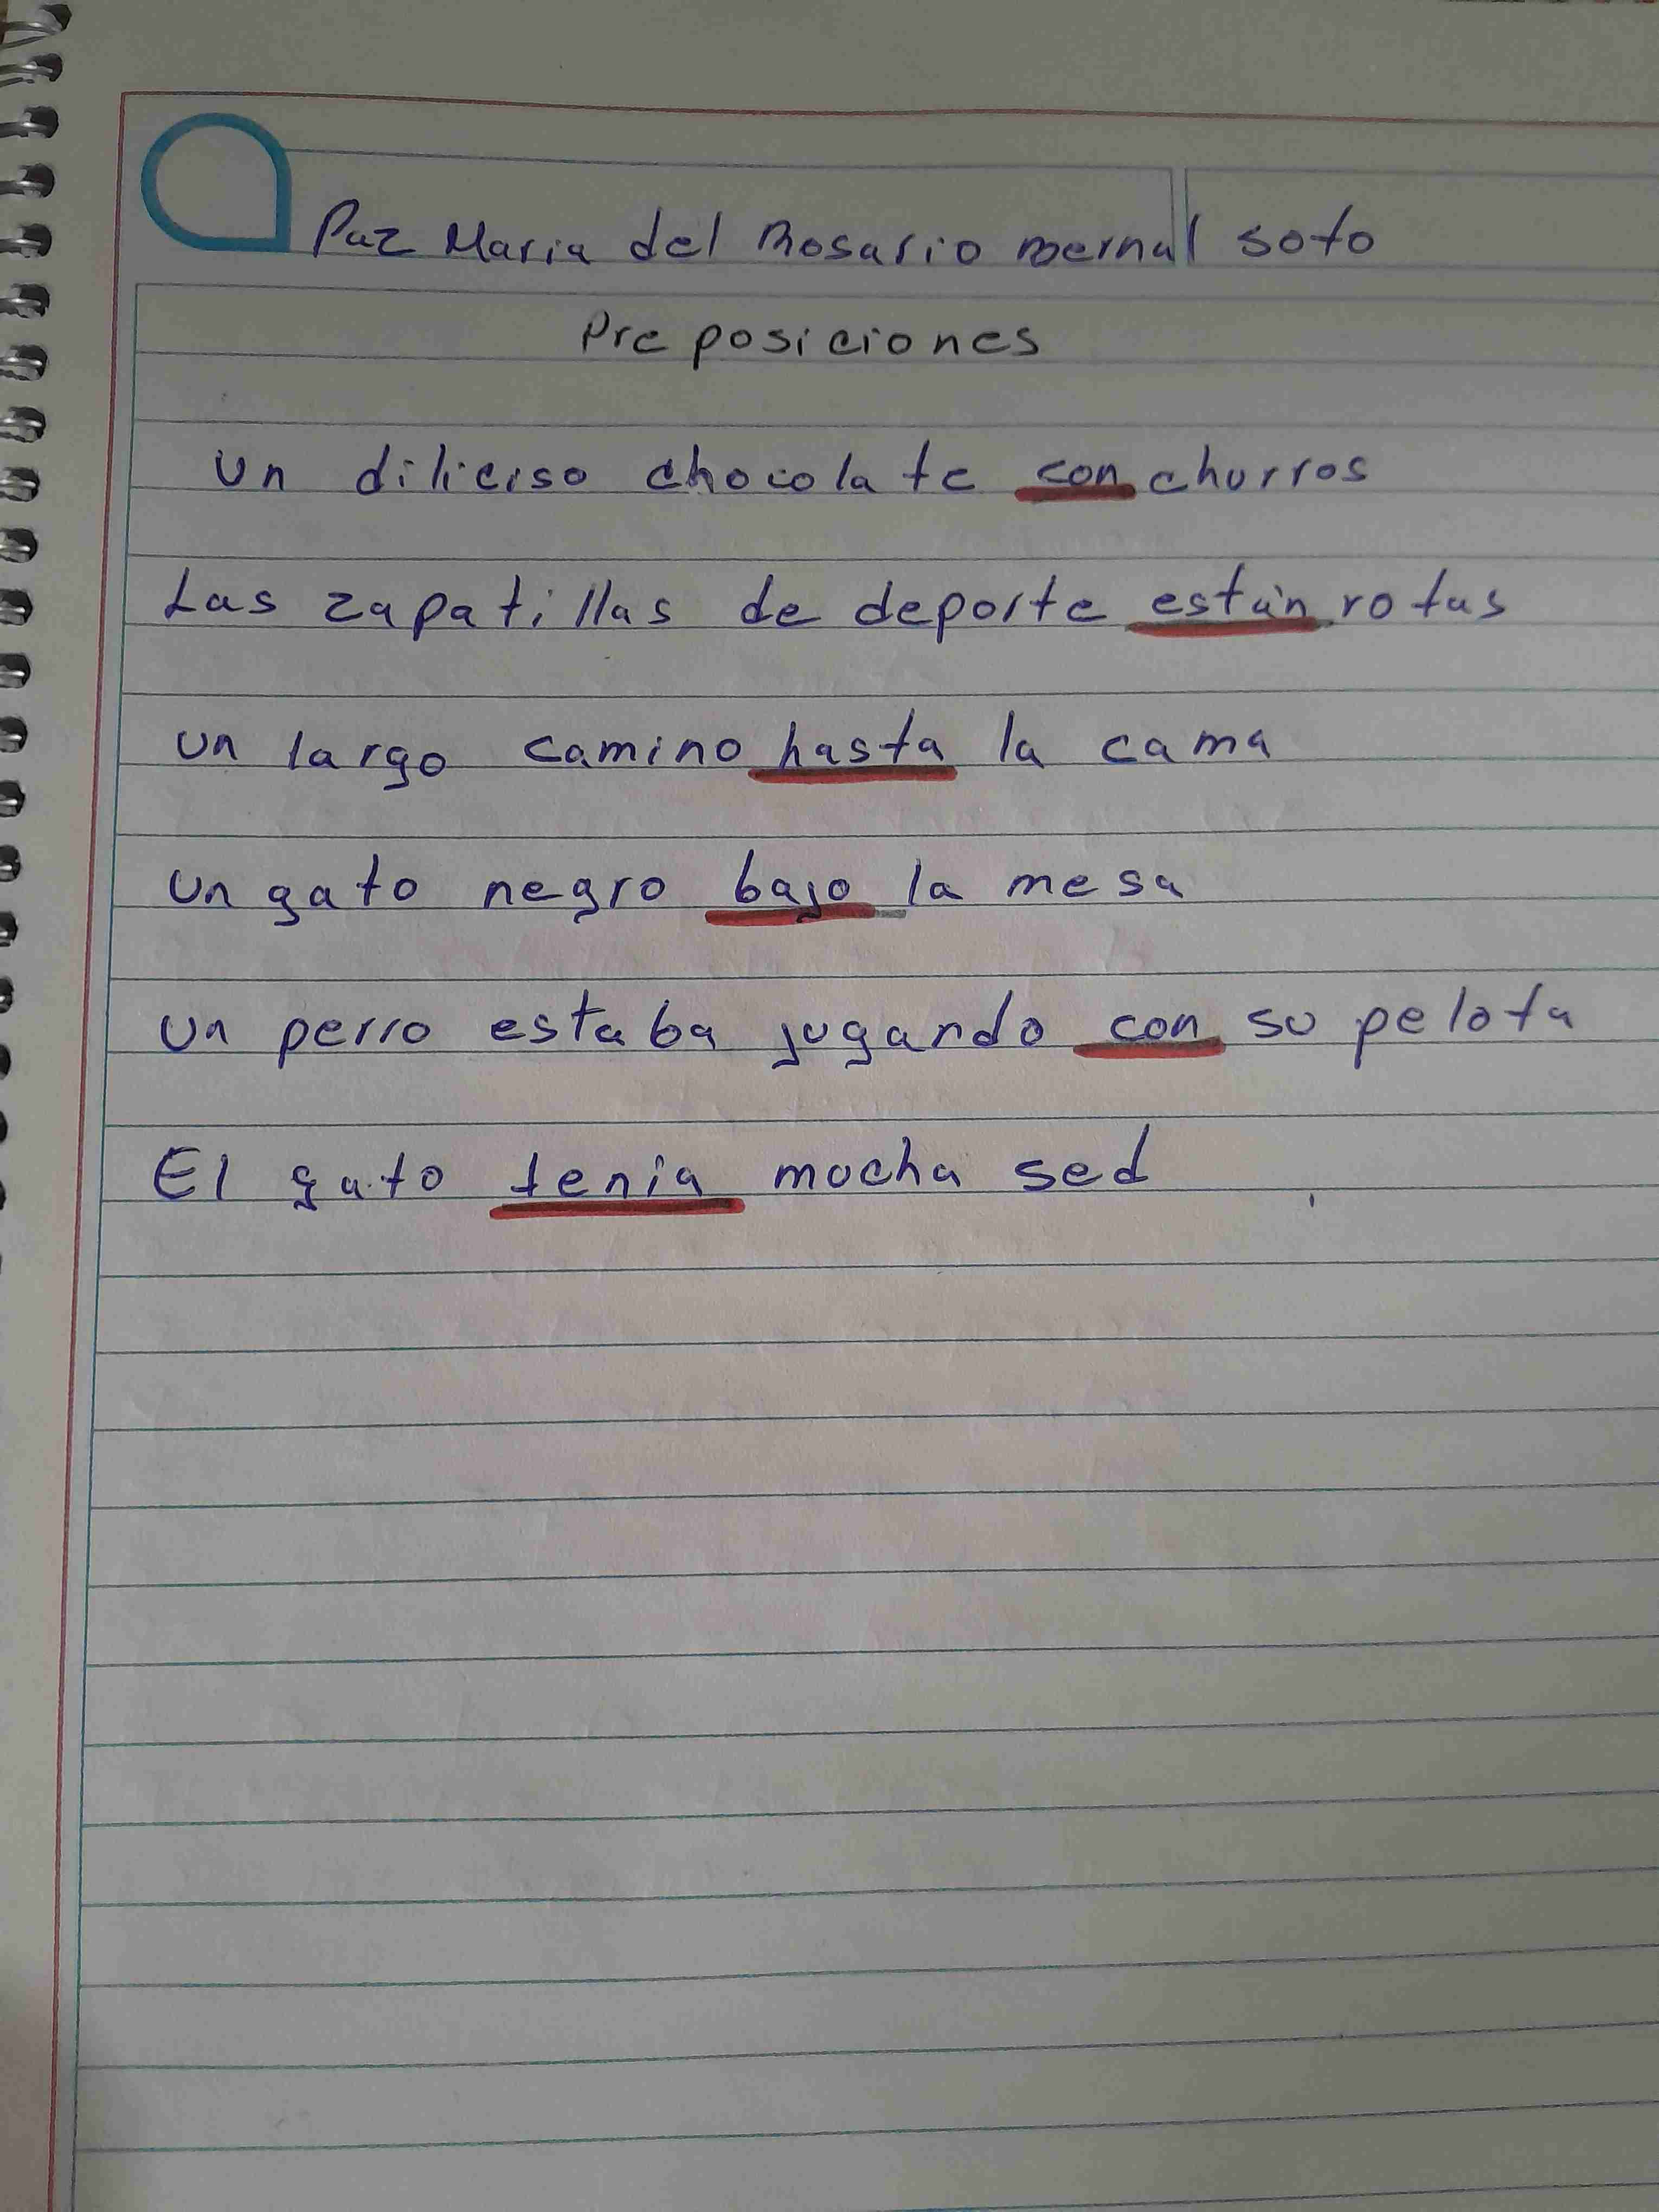 Paz Maria del Rosario Bernal soto
Preposiciones
un diliciso chocolate con churros
Las zapatillas de deporte están rotas
un largo camino hasta la cama
un gato negro bajo la mesa
un perro estaba jugando con su pelota
El gato tenia mucha sed